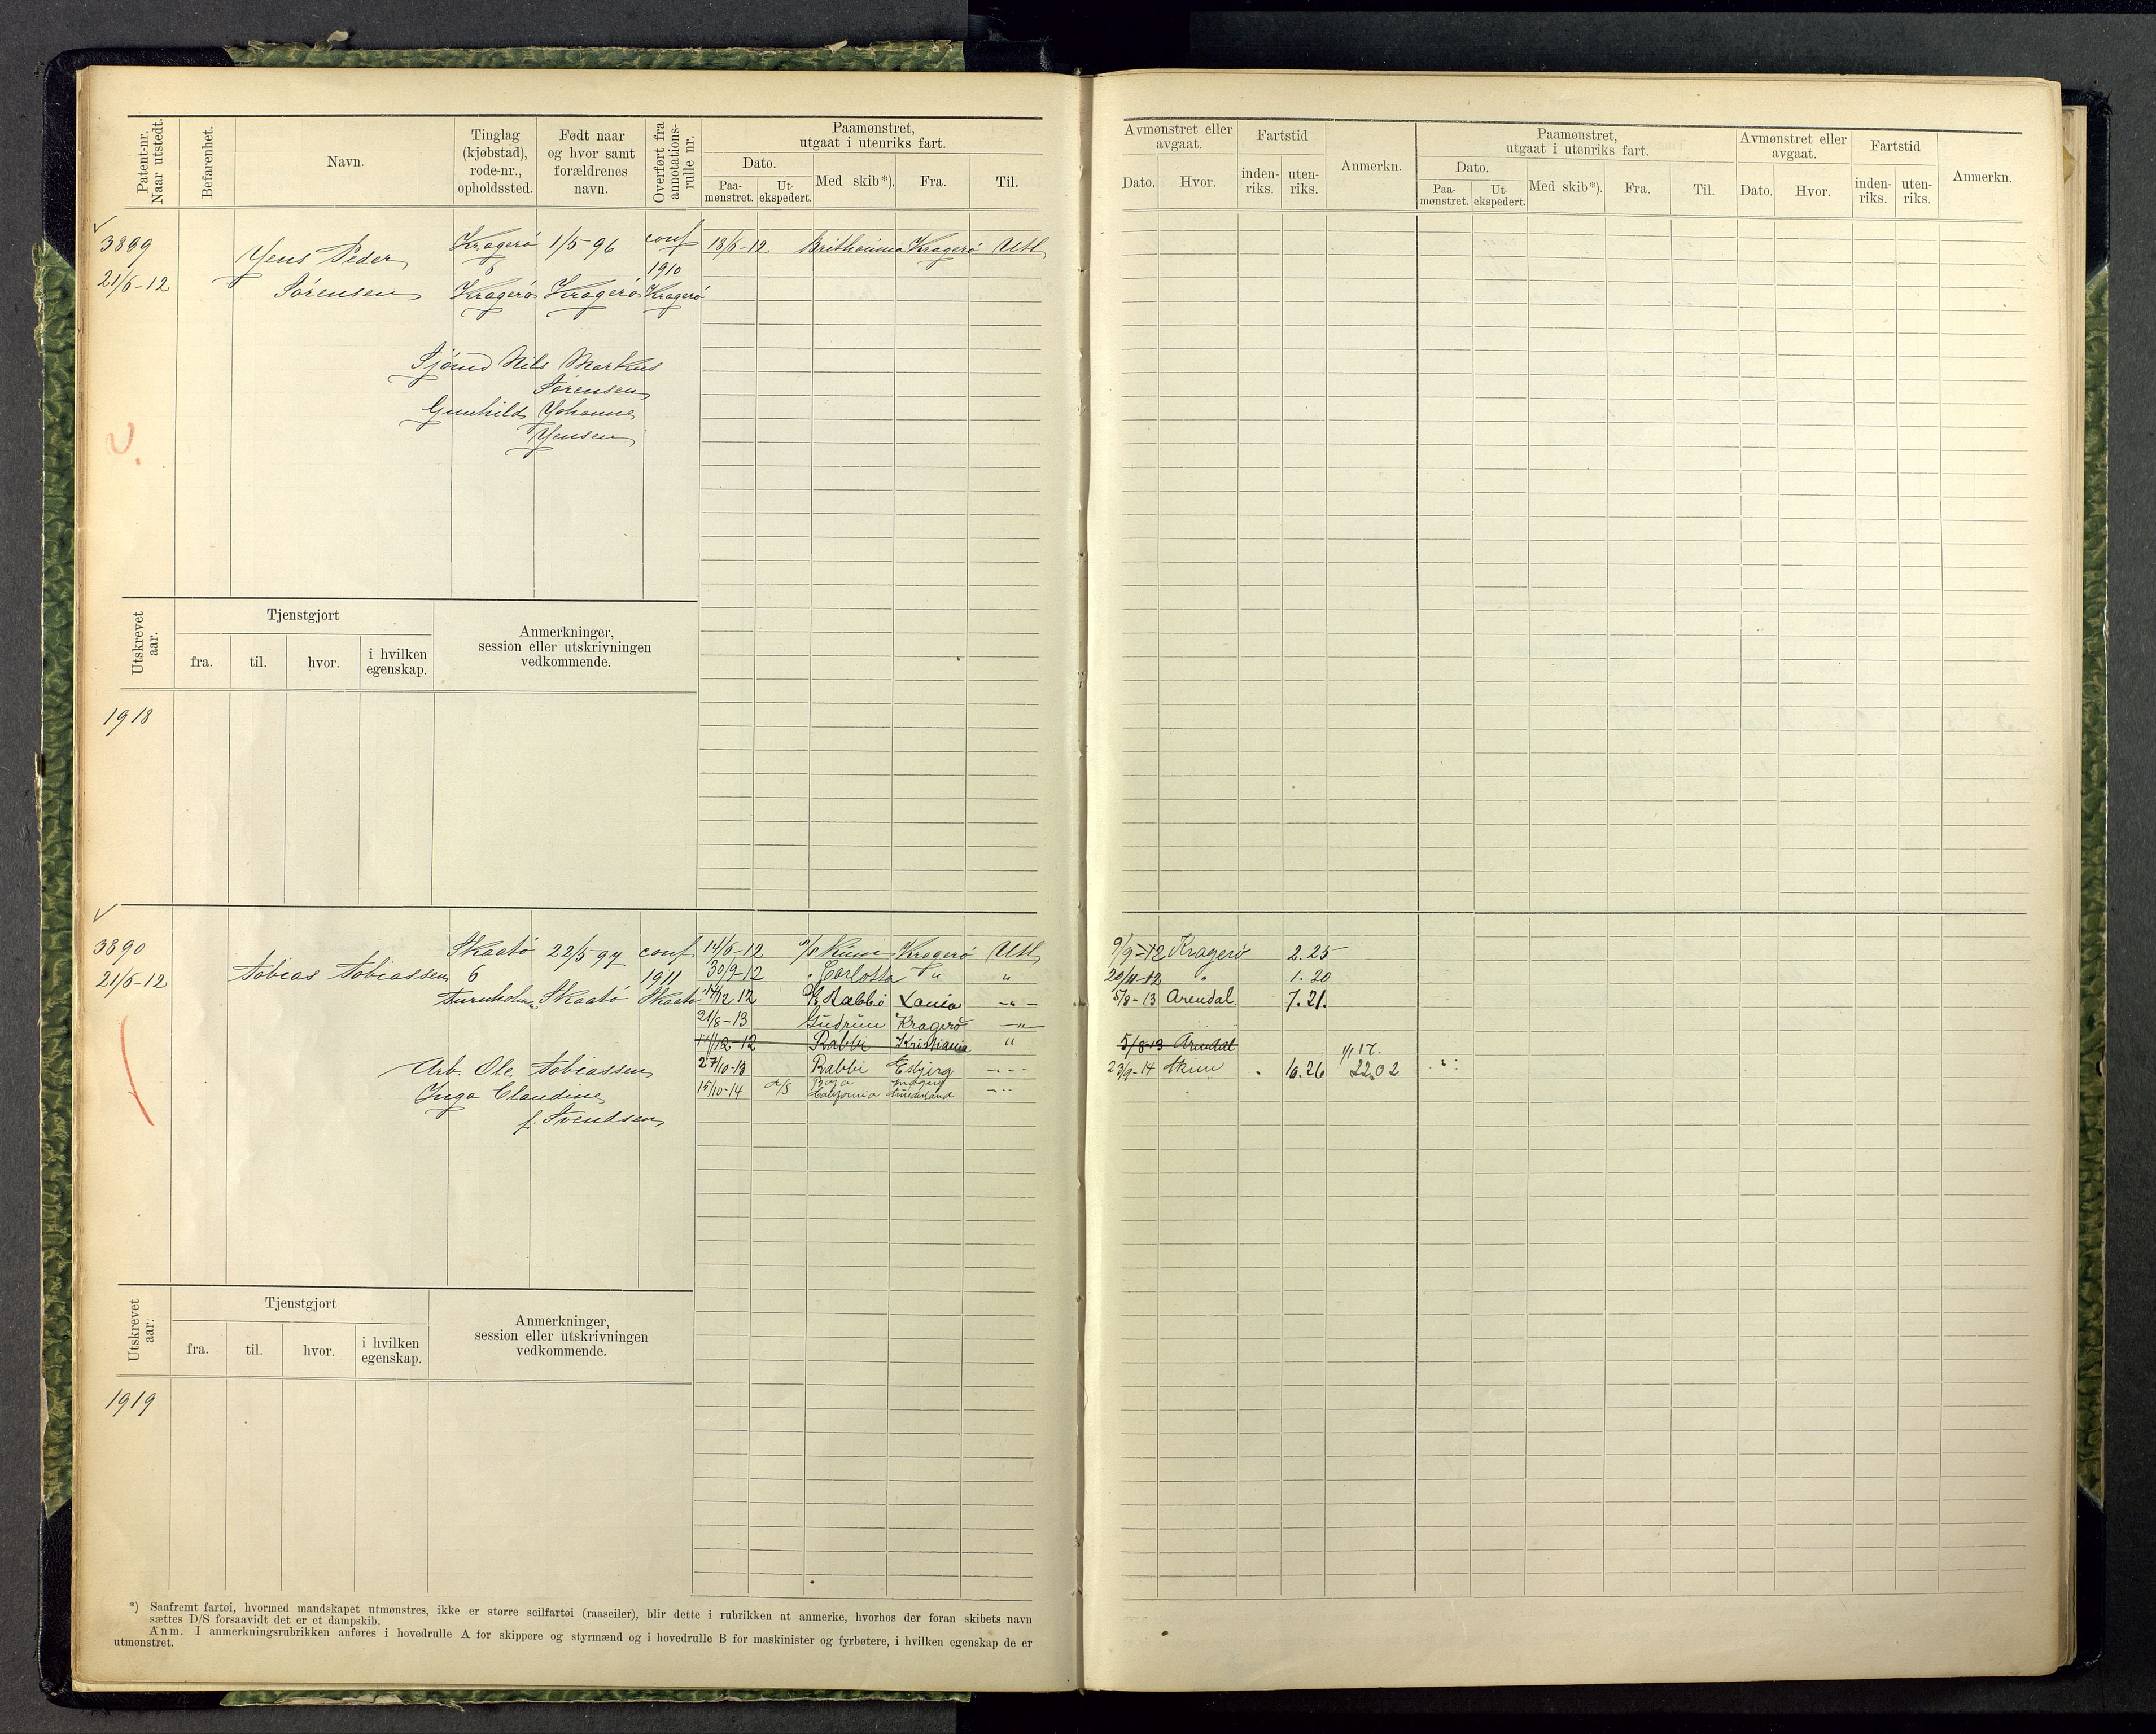 Patent-nr. Naar utstedt. Befarenhet. Navn. Tinglag (kjøbstad), rode-nr., opholdssted. Født naar og hvor samt forældrenes navn. Overført fra annotations-rulle nr. Paamønstret, utgaat i utenriks fart. Dato. Paa-mønstret. Ut-ekspedert. Med skib*). Fra. Til.
3899 Kragerö 1/5-96 conf 18/6-12 Kragerö Utl
Jens Peder 6 1910
21/6-12 Sörensen Kragerö Kragerö Kragerö
Sjömd Nils Markus
Sörensen
Gunhild Johanne
Jensen
Utskrevet aar. Tjenstgjort fra. til. hvor. i hvilken egenskap. Anmerkninger, session eller utskrivningen vedkommende.
1918
3890 Skaatö 22/5-97 conf 14/6-12 Kragerö Utl
21/6-12 Tobias Tobiassen 6 1911 30/9-12 " Carlotta " "
Skaatö Skaatö 12 Rabbi
21/8-13 Gudrun Kragerö -"-
11/12-12 Rabbi Kristiania "
Arb. Ole Tobiassen 27/10-13 Rabbi Esbjerg -"-
Inga Claudine 15/10-14 California -"-
f. Svendsen
Utskrevet aar. Tjenstgjort fra. til. hvor. i hvilken egenskap. Anmerkninger, session eller utskrivningen vedkommende.
1919
*) Saafremt fartøi, hvormed mandskapet utmønstres, ikke er større seilfartøi (raaseiler), blir dette i rubrikken at anmerke, hvorhos der foran skibets navn
sættes D/S forsaavidt det er et dampskib.
Anm. I anmerkningsrubrikken anføres i hovedrulle A for skippere og styrmænd og i hovedrulle B for maskinister og fyrbøtere, i hvilken egenskap de er
utmønstret.
Avmønstret eller avgaat. Dato. Hvor. Fartstid inden-riks. uten-riks. Anmerkn. Paamønstret, utgaat i utenriks fart. Dato. Paa-mønstret. Ut-ekspedert. Med skib*). Fra. Til. Avmønstret eller avgaat. Dato. Hvor. Fartstid inden-riks. uten-riks. Anmerkn.
9/9-12 Kragerö 2.25
20/11-12 " 1.20
5/8-13 Arendal. 7.21.
5/8-13 Arendal
1/1 17.
23/9-14 10.26 22.02